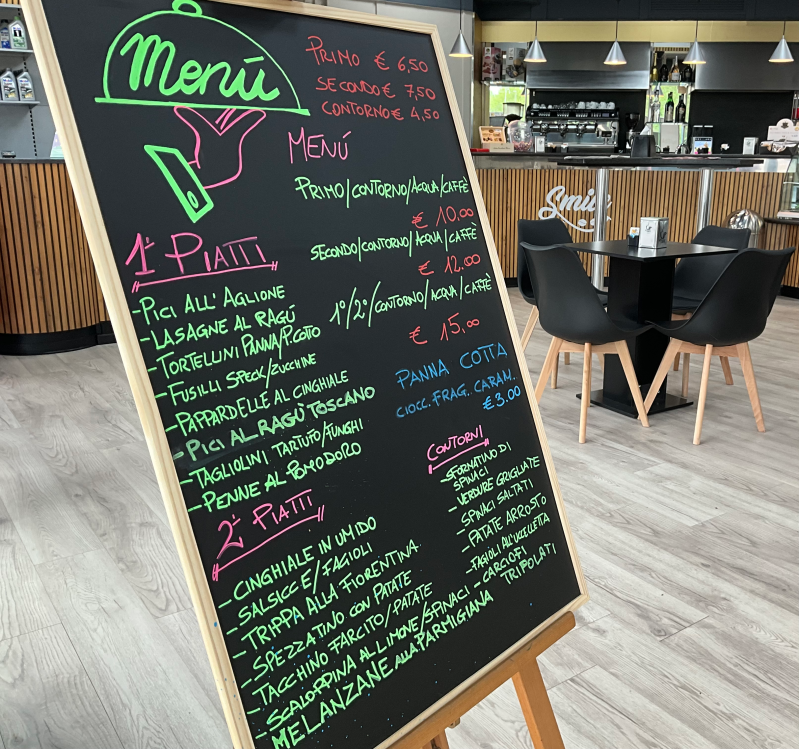 Menú
PRIMO € 6,50
SECONDO € 7,50
CONTORNO € 4,50
MENÚ
PRIMO/CONTORNO/ACQUA/CAFFÈ
€ 10.00
SECONDO/CONTORNO/ACQUA/CAFFÈ
€ 12.00
1°/2°/CONTORNO/ACQUA/CAFFÈ
€ 15.00
PANNA COTTA
CIOCC. FRAG. CARAM.
€ 3.00
1i PIATTI
- PICI ALL'AGLIONE
- LASAGNE AL RAGÚ
- TORTELLINI PANNA/P.COTO
- FUSILLI SPECK/ZUCCHINE
- PAPPARDELLE AL CINGHIALE
- PICI AL RAGÙ TOSCANO
- TAGLIOLINI TARTUFO/FUNGHI
- PENNE AL POMODORO
2i PIATTI
- CINGHIALE IN UMIDO
- SALSICCE/FAGIOLI
- TRIPPA ALLA FIORENTINA
- SPEZZATINO CON PATATE
- TACCHINO FARCITO/PATATE
- SCALOPPINA AL LIMONE/SPINACI
- MELANZANE ALLA PARMIGIANA
CONTORNI
- SFORNATINO DI
SPINACI
- VERDURE GRIGLIATE
- SPINACI SALTATI
- PATATE ARROSTO
- FAGIOLI ALL'UCCELLETTA
- CARCIOFI
TRIPOLATI